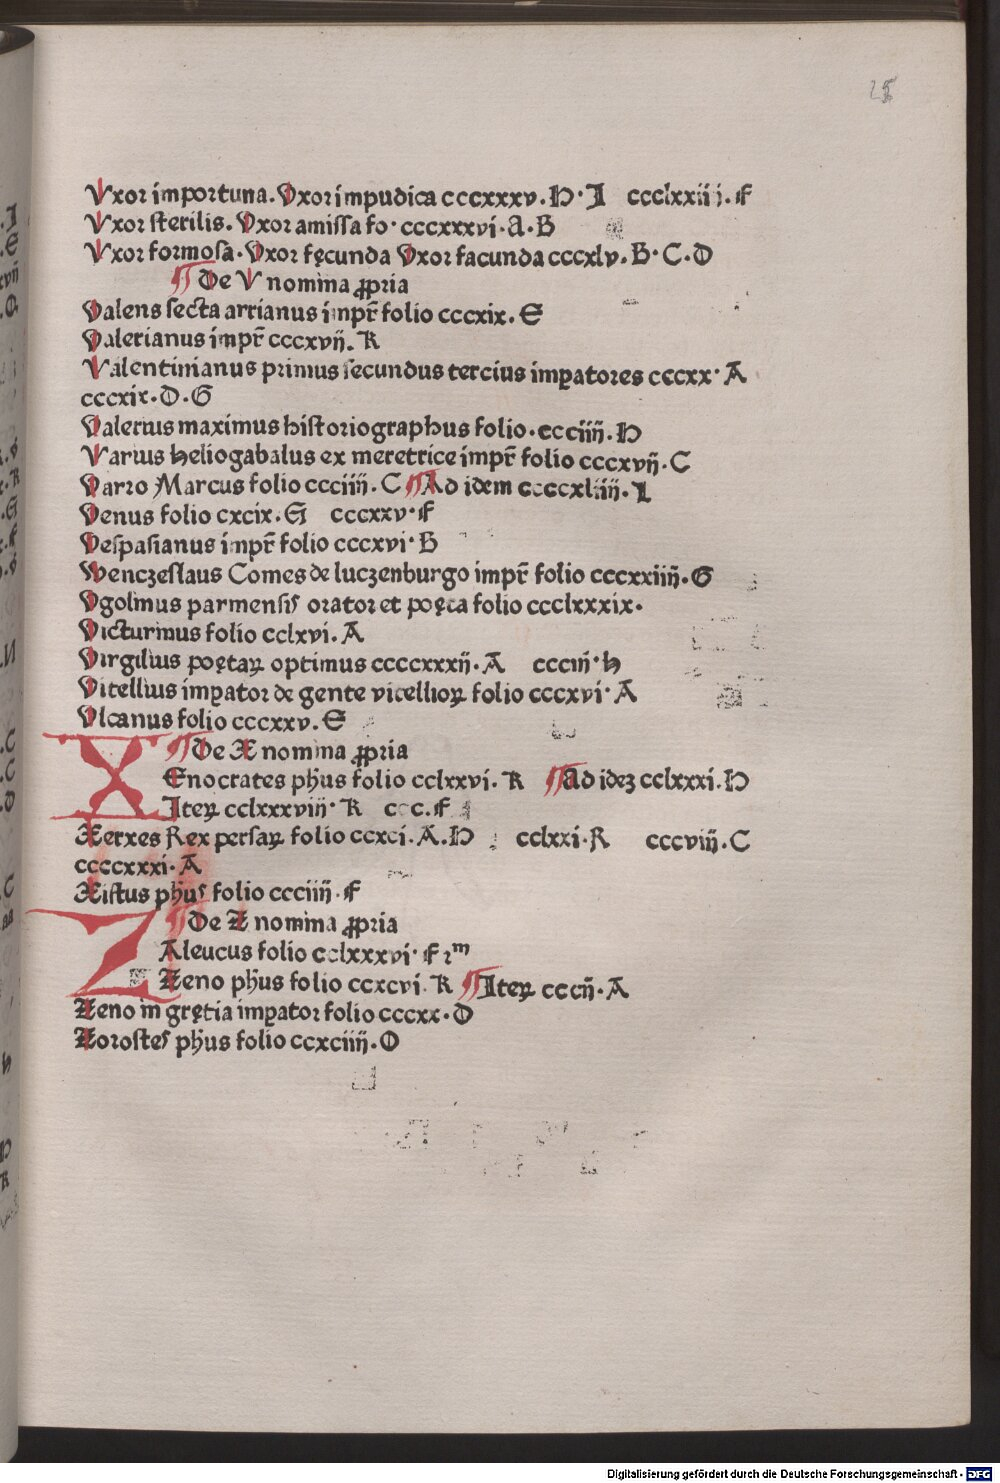 25
Uxor importuna. Uxor impudica cccxxxv. H. I ccclxxiii j. F
Uxor sterilis. Uxor amissa fo. cccxxxvi. A. B
Uxor formosa. Uxor fęcunda Uxor facunda cccxlv. B. C. D
¶ De V nomina ꝓpria
Valens secta arrianus impr̄ folio cccxix. E
Valerianus impr̄ cccxvij. K
Valentinianus primus secundus tercius imꝑatores cccxx. A
cccxix. D. G
Valerius maximus historiographus folio. ccciiij. H
Varius heliogabalus ex meretrice impr̄ folio cccxvij. C
Varro Marcus folio ccciiij. C ¶ Ad idem ccccxliiij. I
Venus folio cxcix. G cccxxv. F
Vespasianus impr̄ folio cccxvi. B
Wenczeslaus Comes de luczenburgo impr̄ folio cccxxiiij. G
Vgolinus parmensis orator et poęta folio ccclxxxix.
Victurinus folio cclxvi. A
Virgilius poętaꝝ optimus ccccxxxij. A ccciii. h
Vitellius imꝑator de gente vitellioꝝ folio cccxvi. A
Vlcanus folio cccxxv. E
¶ De X nomina ꝓpria
XEnocrates ph̄us folio cclxxvi. K ¶ Ad idez cclxxxi. H
Iteꝝ cclxxxviij. K ccc. F
Xerxes Rex persaꝝ folio ccxci. A. H cclxxi. R cccviij. C
ccccxxxi. A
Xistus ph̄us folio ccciiij. F
¶ De Z nomina ꝓpria
ZAleucus folio cclxxxvi. F 2m
Zeno ph̄us folio ccxcvi. K ¶ Iteꝝ cccij. A
Zeno in gręcia imꝑator folio cccxx. D
Zorostes ph̄us folio ccxciiij. O
Digitalisierung gefördert durch die Deutsche Forschungsgemeinschaft - DFG